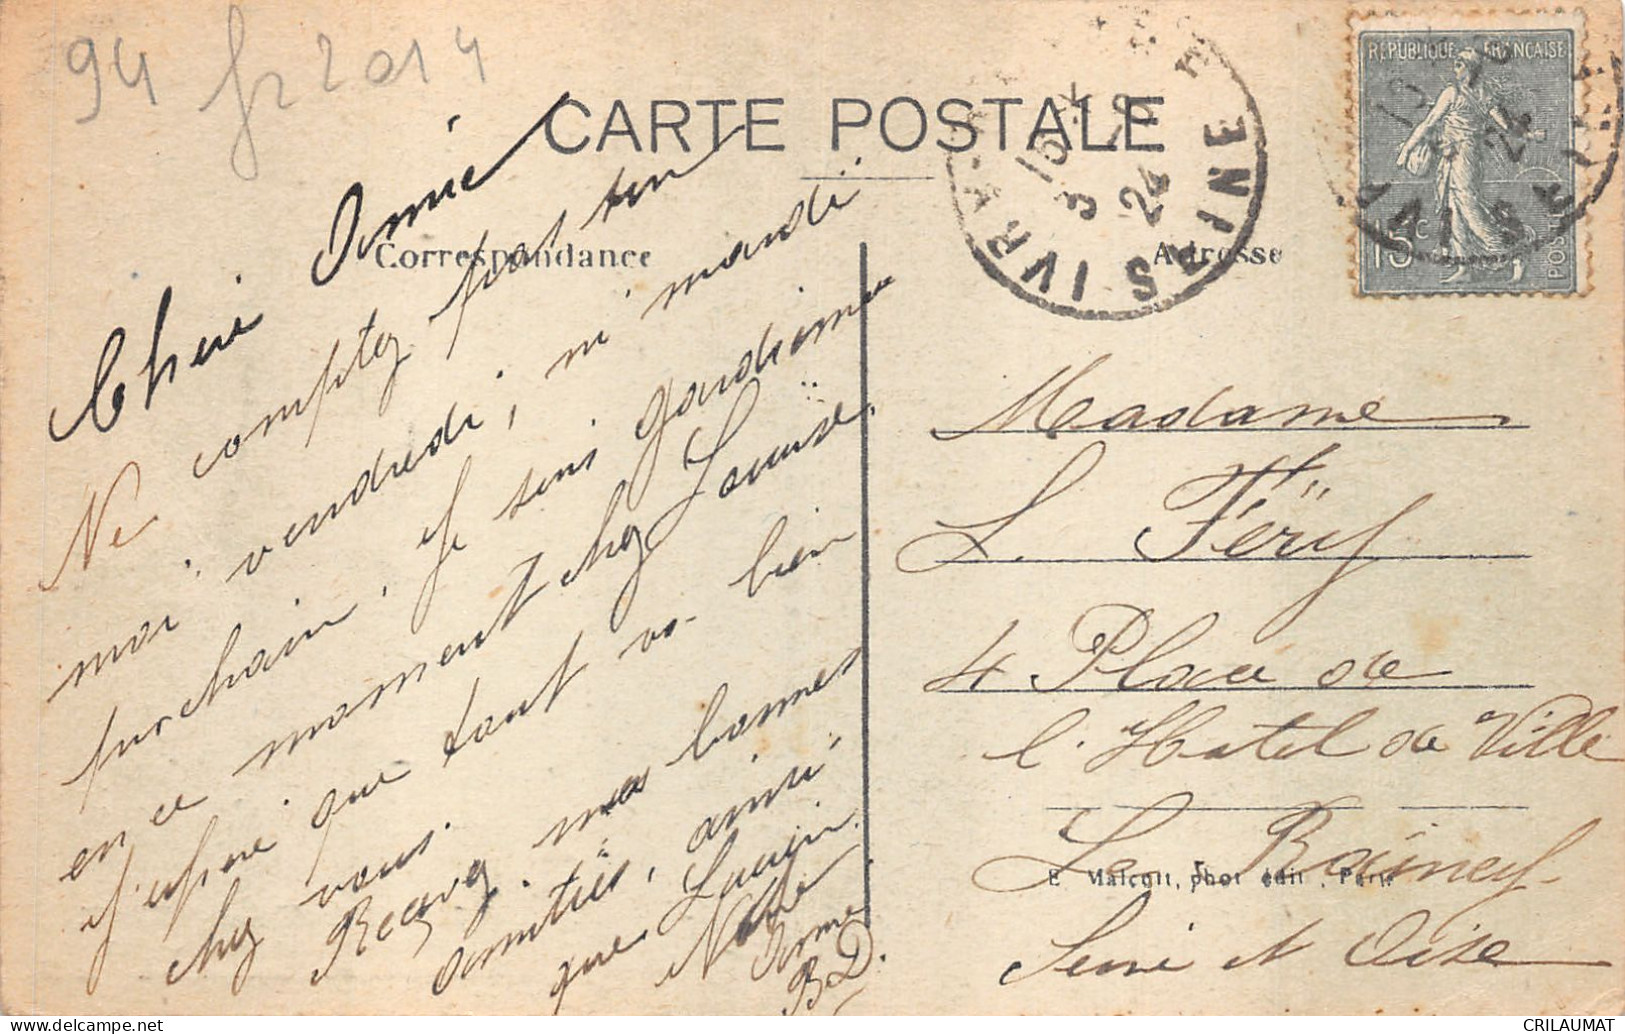 94 fr 2014
CARTE POSTALE
Correspondance
Adresse
RÉPUBLIQUE FRANÇAISE
15c
POSTES
IVRY
SEINE
24
Cherie Amie
Ne comptez pas sur
moi vendredi, ni mardi
prochain, je suis gardienne
en ce moment chez Louise.
J'espère que tout va bien
chez vous.
Recevez mes bonnes
amitiés, ainsi
que Lucien.
Votre
Amie
B.D.
Madame
L. Féry
4 Place de
l'Hotel de Ville
Le Raincy
Seine et Oise
E Malcuit, phot édit, Paris
CRILAUMAT